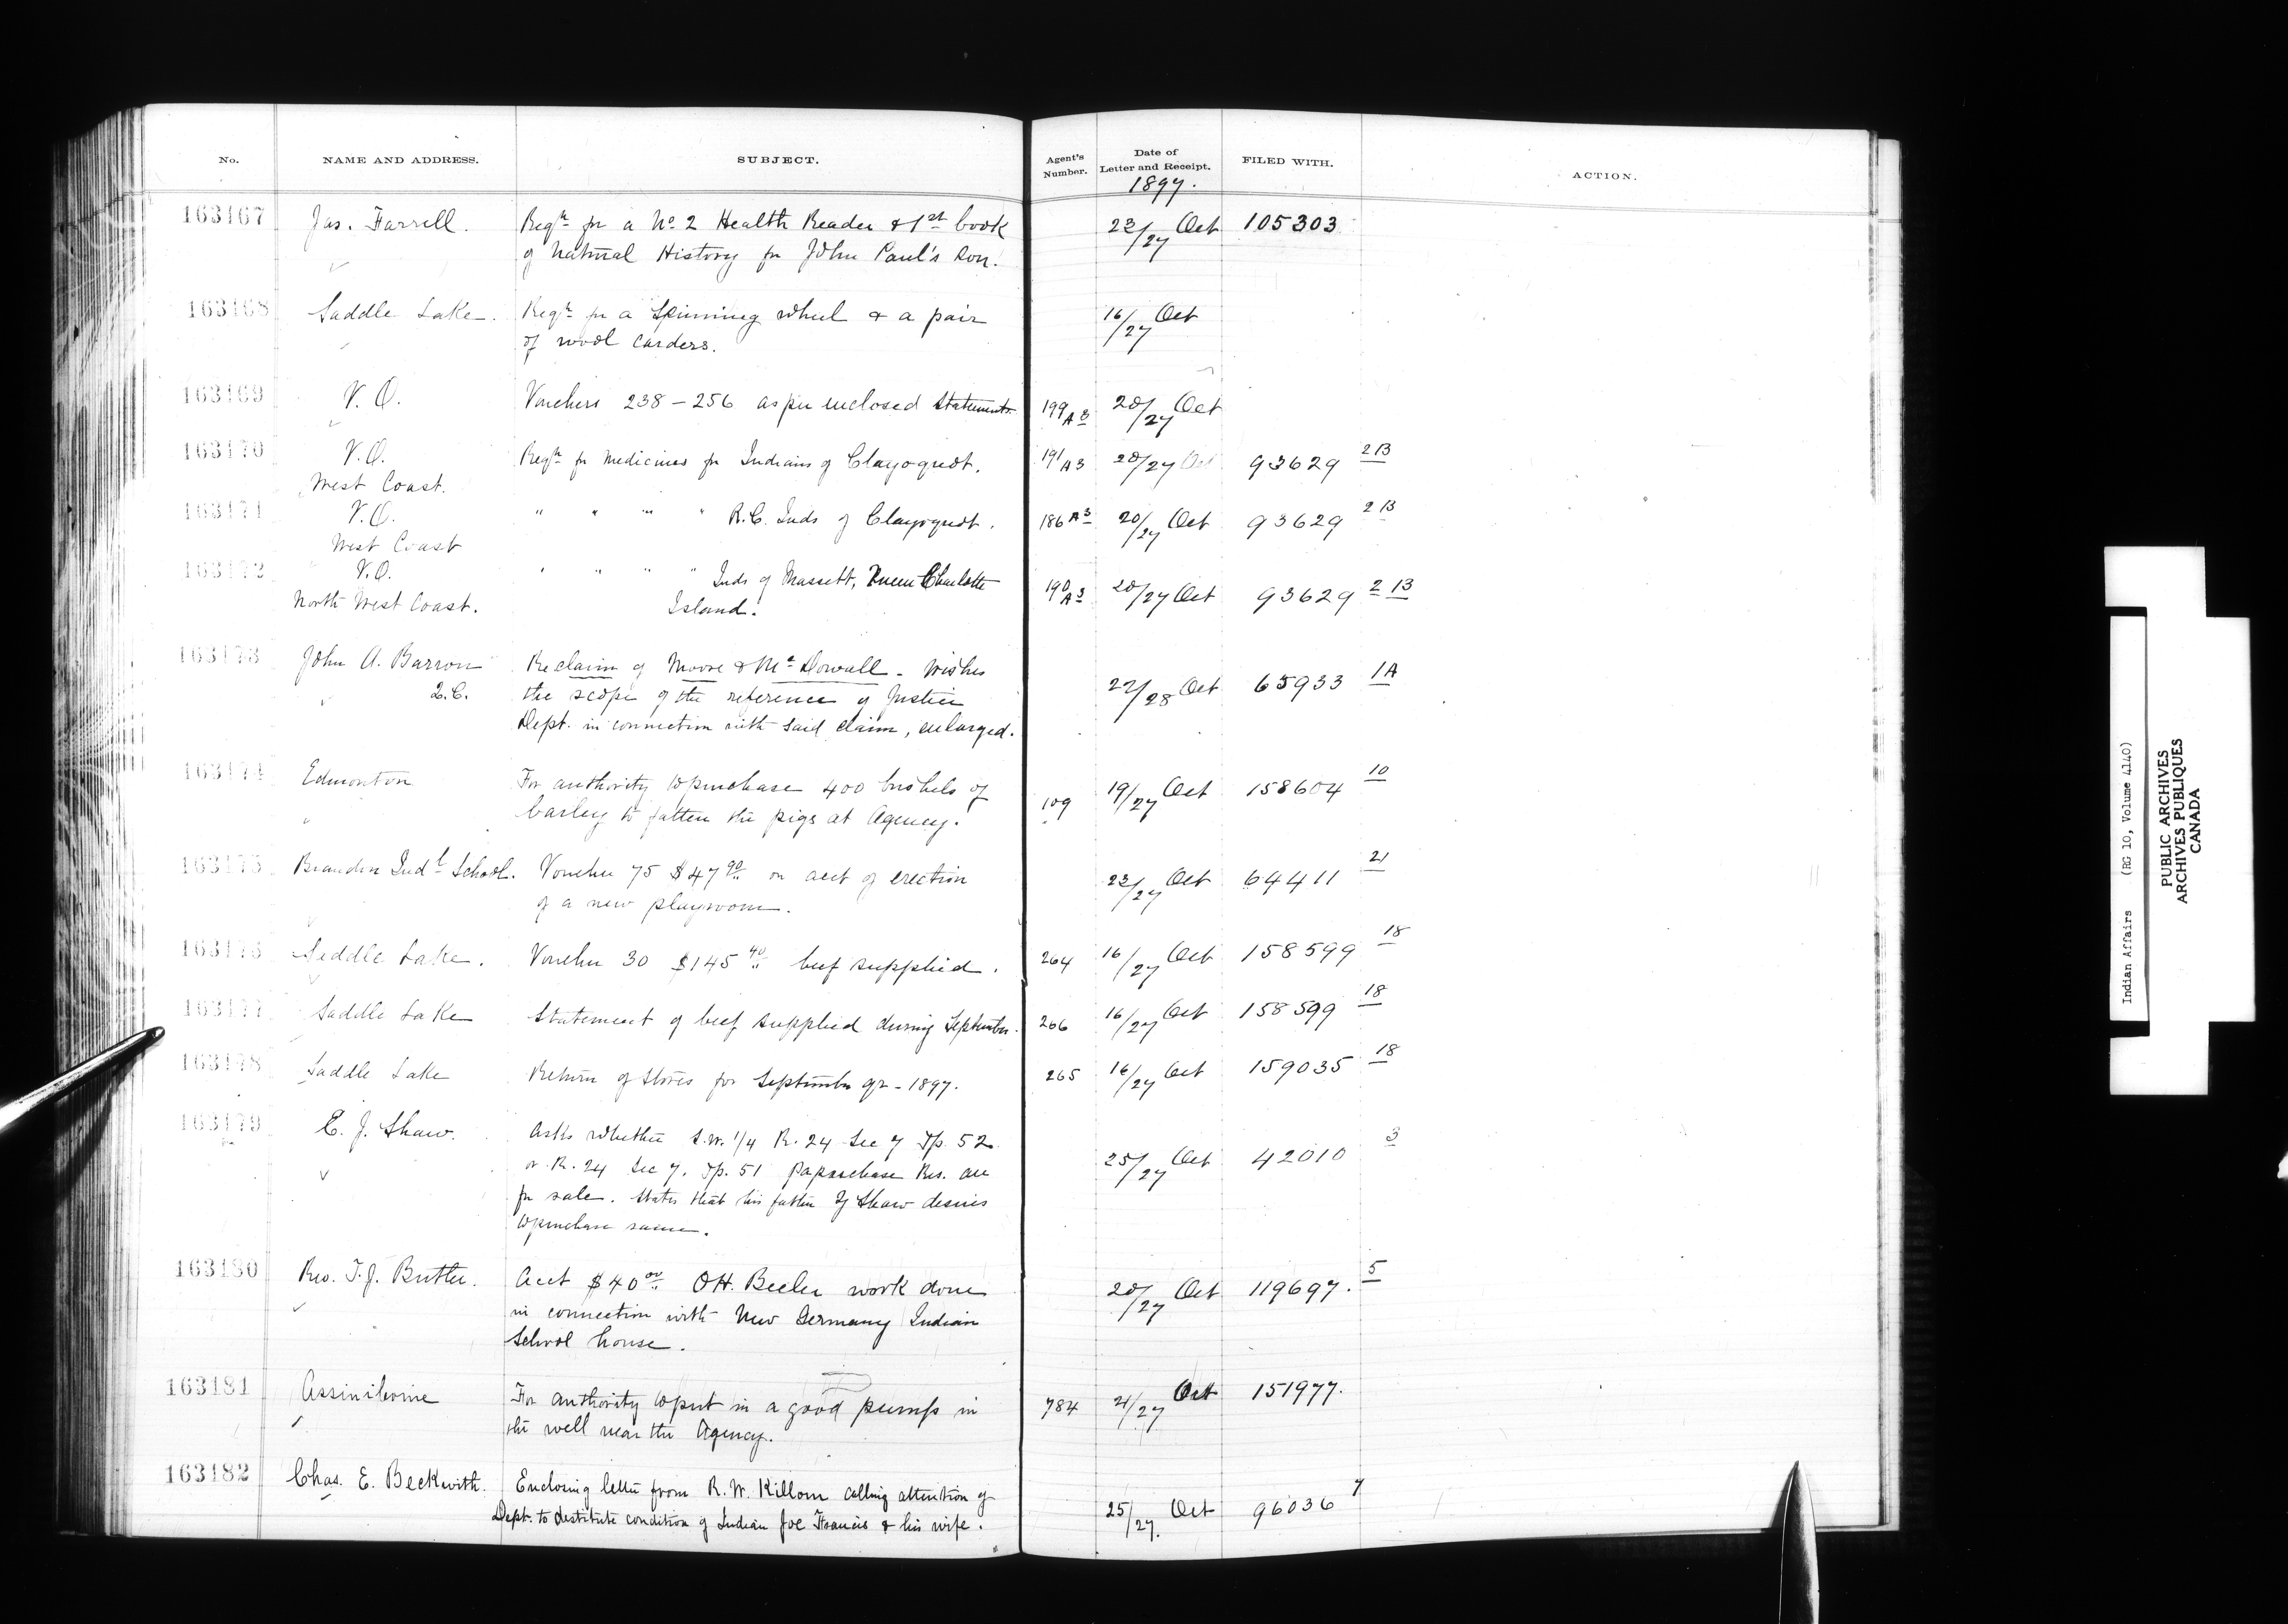 No. NAME AND ADDRESS. SUBJECT. Agent's Number. Date of Letter and Receipt. FILED WITH. ACTION.
1897.
163167 Jas. Farrell. Reqn for a No 2 Health Reader & 1st book 23/27 Oct 105303
of Natural History for John Paul's son.
163168 Saddle Lake. Reqn for a Spinning wheel & a pair 16/27 Oct
of wool carders.
163169 V.O. Vouchers 238-256 as per enclosed statements. 199 A3 20/27 Oct
163170 V.O. Reqn for Medicines for Indians of Clayoquot. 191 A3 20/27 Oct 93629 2B
West Coast.
163171 V.O. " " " " R.C. Inds of Clayoquot. 186 A3 20/27 Oct 93629 2B
West Coast
163172 V.O. " " " " Inds of Massett, Queen Charlotte 190 A3 20/27 Oct 93629 2B
North West Coast. Island.
163173 John A. Barron Re claim of Moore & McDowall - Wishes 27/28 Oct 65933 1A
Q.C. the scope of the reference of Justice
Dept. in connection with said claim, enlarged.
163174 Edmonton For authority to purchase 400 bushels of 109 19/27 Oct 158604 10
barley to fatten the pigs at Agency.
163175 Brandon Indl School. Voucher 75 $47.90 on acct of erection 23/27 Oct 64411 21
of a new playroom.
163176 Saddle Lake. Voucher 30 $145.40 beef supplied. 264 16/27 Oct 158599 18
163177 Saddle Lake Statement of beef supplied during September. 266 16/27 Oct 158599 18
163178 Saddle Lake Return of Stores for September qr - 1897. 265 16/27 Oct 159035 18
163179 E. J. Shaw. Asks whether S.W. 1/4 R. 24 Sec 7 Tp. 52 25/27 Oct 42010 3
or R. 24 Sec 7. Tp. 51 Papaschase Res. are
for sale. States that his father Shaw desires
to purchase same.
163180 Rev. T.J. Butler. Acct $40.00 OH. Beeler work done 20/27 Oct 119697. 5
in connection with New Germany Indian
School house.
163181 Assiniboine For authority to put in a good pump in 784 21/27 Oct 151977.
the well near the Agency.
163182 Chas. E. Beckwith. Enclosing letter from R. W. Killom calling attention of 25/27. Oct 96036 7
Dept. to destitute condition of Indian Joe Francis & his wife.
Indian Affairs (RG 10, Volume 4140)
PUBLIC ARCHIVES
ARCHIVES PUBLIQUES
CANADA